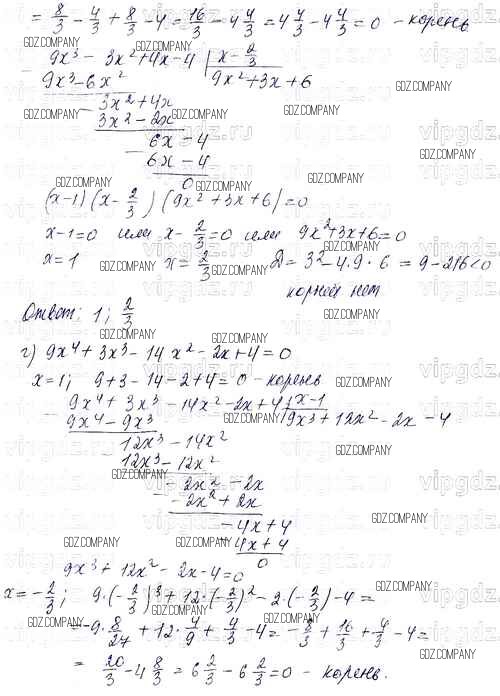 = 8/3 - 4/3 + 8/3 - 4 = 16/3 - 4 4/3 = 4 4/3 - 4 4/3 = 0 - корень
9x³ - 3x² + 4x - 4 | x - 2/3
9x³ - 6x² | 9x² + 3x + 6
3x² + 4x
3x² - 2x
6x - 4
6x - 4
0
(x-1)(x - 2/3)(9x² + 3x + 6) = 0
x-1=0 или x - 2/3 = 0 или 9x²+3x+6=0
x=1 x = 2/3 D = 3² - 4·9·6 = 9 - 216 < 0
корней нет
Ответ: 1; 2/3
г) 9x⁴ + 3x³ - 14x² - 2x + 4 = 0
x=1; 9+3-14-2+4=0 - корень
9x⁴ + 3x³ - 14x² - 2x + 4 | x-1
9x⁴ - 9x³ | 9x³ + 12x² - 2x - 4
12x³ - 14x²
12x³ - 12x²
-2x² - 2x
-2x² + 2x
-4x + 4
-4x + 4
0
9x³ + 12x² - 2x - 4 = 0
x = -2/3; 9·(-2/3)³ + 12·(-2/3)² - 2·(-2/3) - 4 =
= -9·8/27 + 12·4/9 + 4/3 - 4 = -8/3 + 16/3 + 4/3 - 4 =
= 20/3 - 4 8/3 = 6 2/3 - 6 2/3 = 0 - корень.